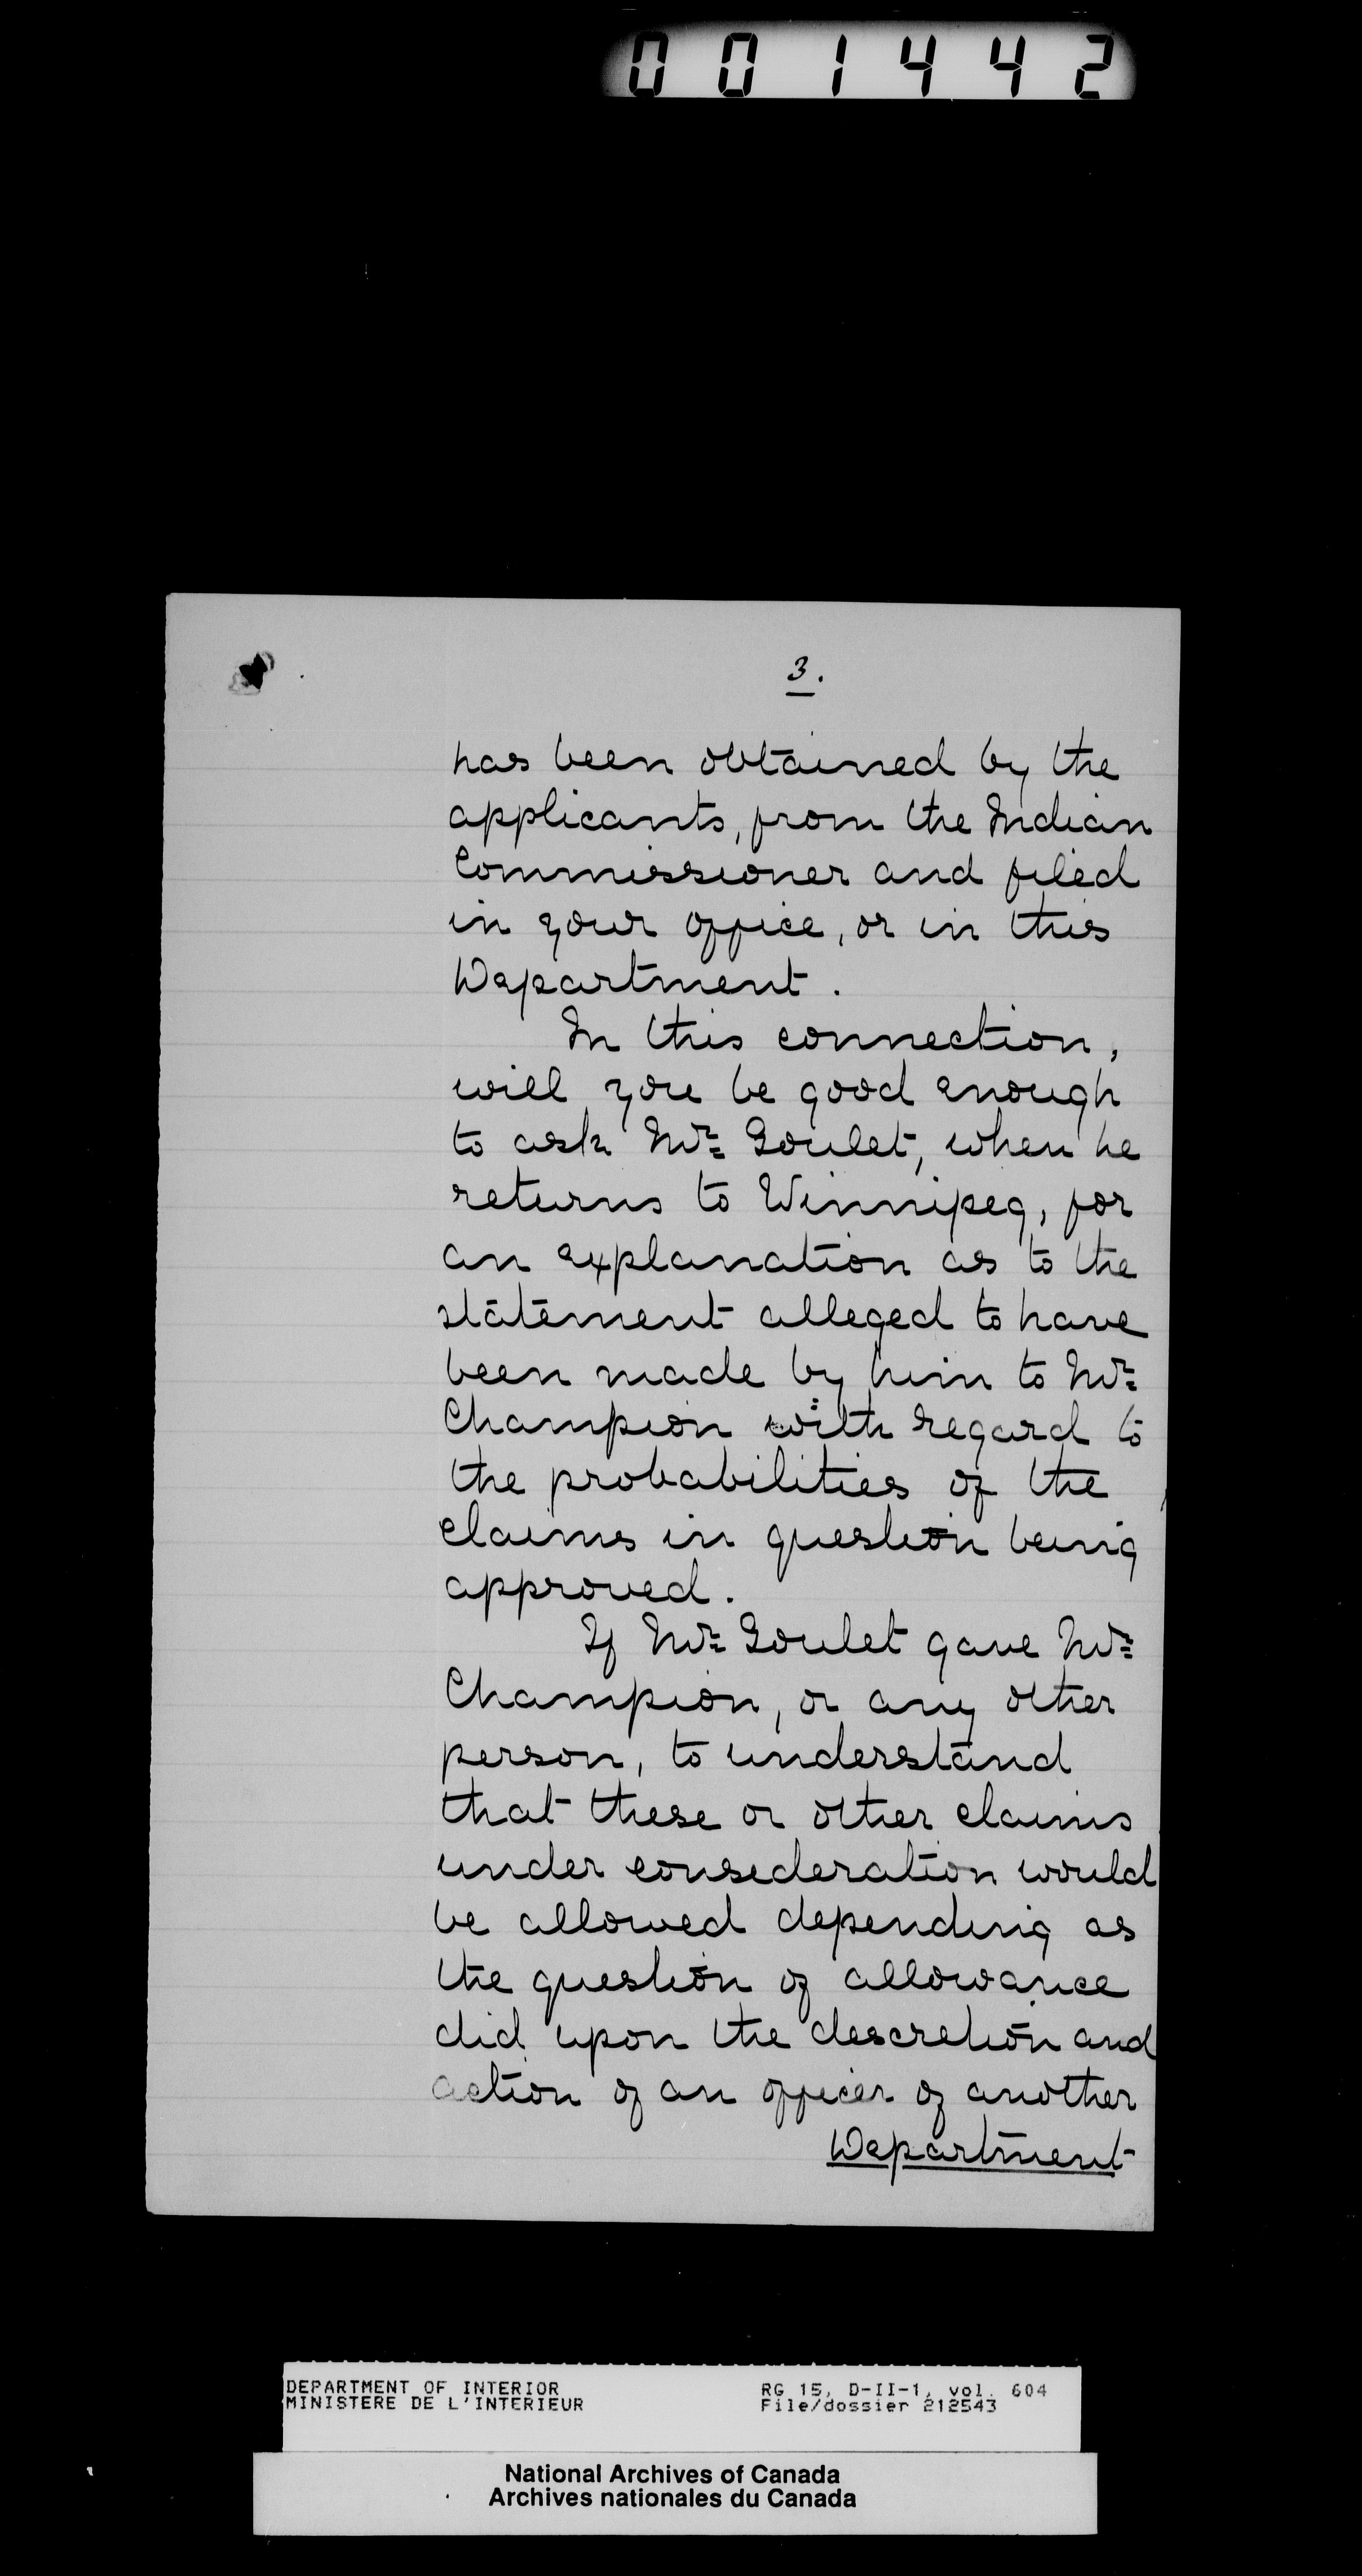 001442
3.
has been obtained by the
applicants, from the Indian
Commissioner and filed
in your office, or in this
Department.
In this connection,
will you be good enough
to ask Mr. Goulet, when he
returns to Winnipeg, for
an explanation as to the
statement alleged to have
been made by him to Mr.
Champion with regard to
the probabilities of the
claims in question being
approved.
If Mr. Goulet gave Mr.
Champion, or any other
person, to understand
that these or other claims
under consideration would
be allowed depending as
the question of allowance
did upon the descretion and
action of an officer of another
Department
DEPARTMENT OF INTERIOR RG 15, D-II-1, vol. 604
MINISTERE DE L'INTERIEUR File/dossier 212543
National Archives of Canada
Archives nationales du Canada